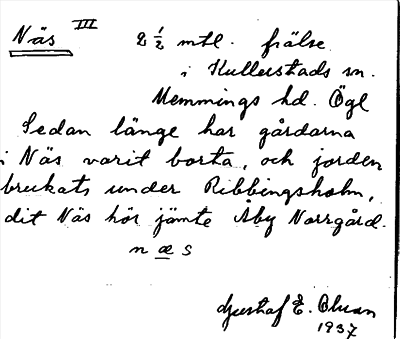 Näs III 2 1/2 mtl. frälse
i Kullerstads sn.
Memmings hd. Ögl
Sedan länge har gårdarna
i Näs varit borta, och jorden
brukats under Ribbingsholm,
dit Näs hör jämte Åby Norrgård.
n æ s
Gustaf E. Olsson
1937